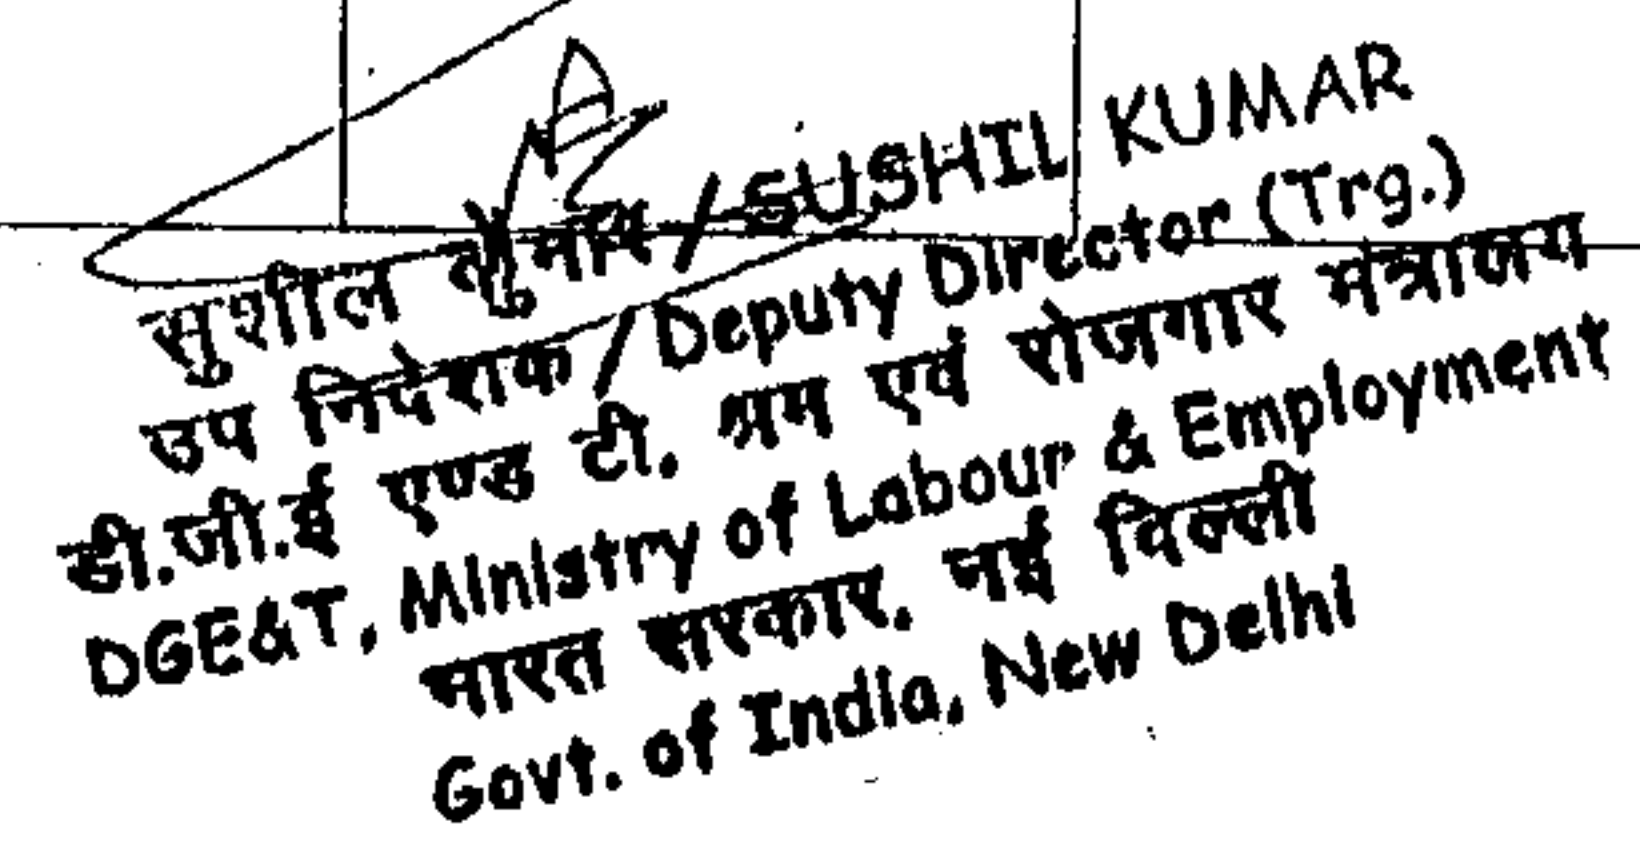 सुशील कुमार / SUSHIL KUMAR
उप निदेशक / Deputy Director (Trg.)
डी.जी.ई एण्ड टी. श्रम एवं रोजगार मंत्रालय
DGE&T, Ministry of Labour & Employment
भारत सरकार, नई दिल्ली
Govt. of India, New Delhi